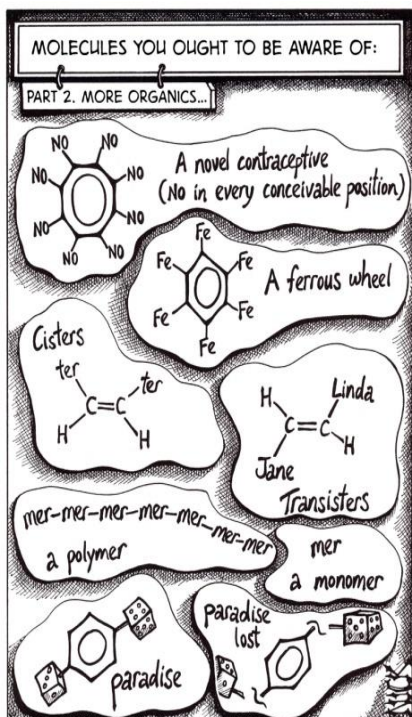 MOLECULES YOU OUGHT TO BE AWARE OF:
PART 2. MORE ORGANICS...
NO NO
NO NO
NO NO
NO NO
A novel contraceptive
(No in every conceivable position)
Fe
Fe Fe
Fe Fe
Fe
A ferrous wheel
Cisters
ter ter
C=C
H H
H Linda
C=C
Jane H
Transisters
mer-mer-mer-mer-mer-mer-mer
a polymer
mer
a monomer
paradise
paradise
lost